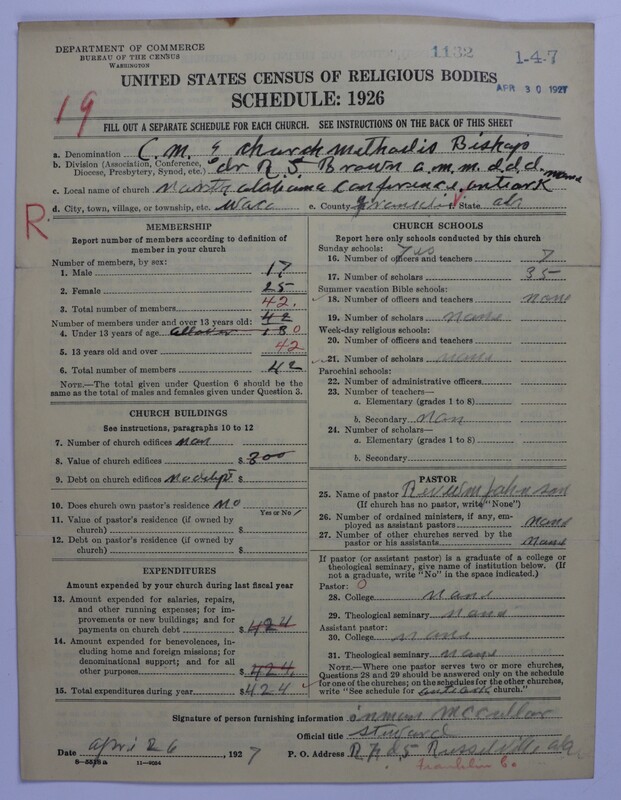 DEPARTMENT OF COMMERCE
BUREAU OF THE CENSUS
WASHINGTON
1132
1-4-7
APR 30 1927
UNITED STATES CENSUS OF RELIGIOUS BODIES
SCHEDULE: 1926
19
FILL OUT A SEPARATE SCHEDULE FOR EACH CHURCH. SEE INSTRUCTIONS ON THE BACK OF THIS SHEET
a. Denomination C. M. E church methodis Bishop
b. Division (Association, Conference, Diocese, Presbytery, Synod, etc.) dr R. S. Brown a.m.m.d.d.d. none
c. Local name of church North alabama conference antioch
d. City, town, village, or township, etc. Waco e. County Franklin f. State ala
R.
MEMBERSHIP
Report number of members according to definition of
member in your church
Number of members, by sex:
1. Male 17
2. Female 25
3. Total number of members 42.
42
Number of members under and over 13 years old:
4. Under 13 years of age 0
5. 13 years old and over 42
6. Total number of members 42
NOTE.—The total given under Question 6 should be the
same as the total of males and females given under Question 3.
CHURCH BUILDINGS
See instructions, paragraphs 10 to 12
7. Number of church edifices
8. Value of church edifices $ 300
9. Debt on church edifices No dept $
10. Does church own pastor's residence? No
Yes or No
11. Value of pastor's residence (if owned by
church) $
12. Debt on pastor's residence (if owned by
church) $
EXPENDITURES
Amount expended by your church during last fiscal year
13. Amount expended for salaries, repairs,
and other running expenses; for im-
provements or new buildings; and for
payments on church debt $ 424
14. Amount expended for benevolences, in-
cluding home and foreign missions; for
denominational support; and for all
other purposes $ 424.
15. Total expenditures during year $ 424
CHURCH SCHOOLS
Report here only schools conducted by this church
Sunday schools: yes
16. Number of officers and teachers 7
17. Number of scholars 35
Summer vacation Bible schools:
18. Number of officers and teachers none
19. Number of scholars none
Week-day religious schools:
20. Number of officers and teachers
21. Number of scholars none
Parochial schools:
22. Number of administrative officers
23. Number of teachers—
a. Elementary (grades 1 to 8)
b. Secondary Non
24. Number of scholars—
a. Elementary (grades 1 to 8)
b. Secondary
PASTOR
25. Name of pastor Rev Wm Johnson
(If church has no pastor, write "None")
26. Number of ordained ministers, if any, em-
ployed as assistant pastors none
27. Number of other churches served by the
pastor or his assistants none
If pastor (or assistant pastor) is a graduate of a college or
theological seminary, give name of institution below. (If
not a graduate, write "No" in the space indicated.)
Pastor: 0
28. College none
29. Theological seminary none
Assistant pastor:
30. College none
31. Theological seminary none
NOTE.—Where one pastor serves two or more churches,
Questions 28 and 29 should be answered only on the schedule
for one of the churches; on the schedules for the other churches,
write "See schedule for antioch church."
Signature of person furnishing information
Official title
Date april 26, 1927 P. O. Address R. F. d 5 Russelville ala
Franklin Co.
8-5518a 11-4024